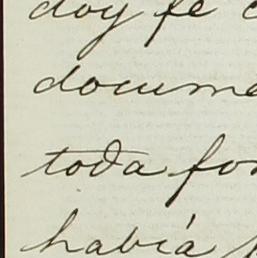 doy fe
docume
toda fo
había